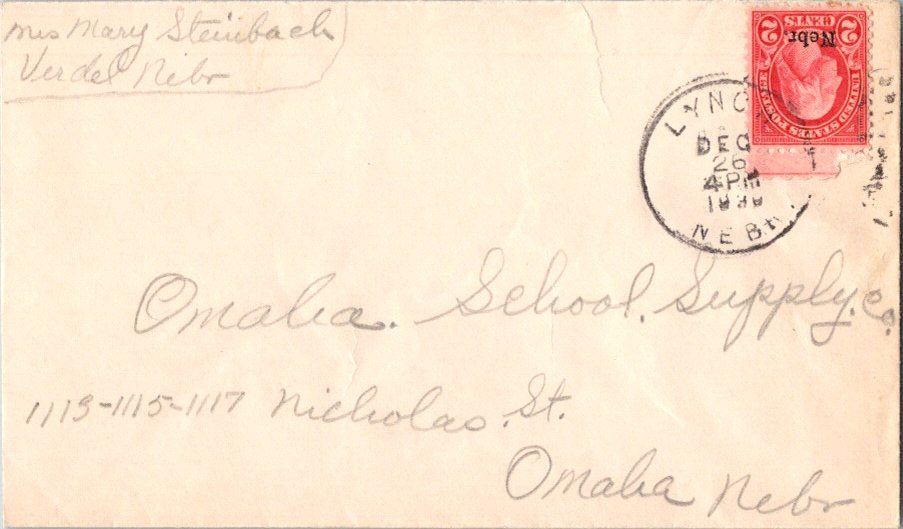 Mrs Mary Steinbach
Verdel Nebr
2 CENTS 2
Nebr.
UNITED STATES POSTAGE
LYNCH
DEC
26
4 PM
NEBR.
Omaha. School. Supply. Co.
1113-1115-1117 Nicholas. St.
Omaha Nebr